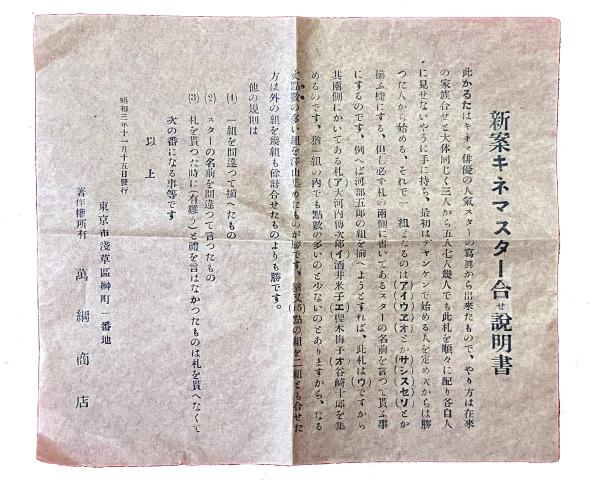 新案キネマスター合せ説明書
此かるたはキネマ俳優の人氣スターの寫眞から出來たもので、やり方は在來
の家族合せと大体同じく三人から五人七人幾人でも此札を順々に配り各自人
に見せないやうに手に持ち、最初はヂャンケンで始める人を定め次からは勝
つた人から始める、それで一組となるのは(アイウヱオ)とか(サシスセソ)とか
揃ふ樣にする、但し必ず札の兩側に書いてあるスターの名前を言つて貰ふ事
にするのです、例へば河部五郎の組を揃へようとすれば、此札は(ウ)ですから
其兩側にかいてある札(ア)大河内傳次郎(イ)酒井米子(エ)櫻木梅子(オ)谷崎十郎を集
めるのです、猶一組の内でも點數の多いのと少ないのとありますから、なる
丈點數の多い組を澤山集めたものが勝です、猶又(15)點の組を二組とも合せた
方は外の組を幾組も餘計合せたものよりも勝です。
他の規則は
(1) 一組を間違つて揃へたもの
(2) スターの名前を間違つて言つたもの
(3) 札を貰つた時に(有難う)と禮を言はなかつたものは札を貰へなくて
次の番になる事等です
以上
昭和三年十一月十五日發行
東京市淺草區榊町一番地
著作權所有 萬綱商店